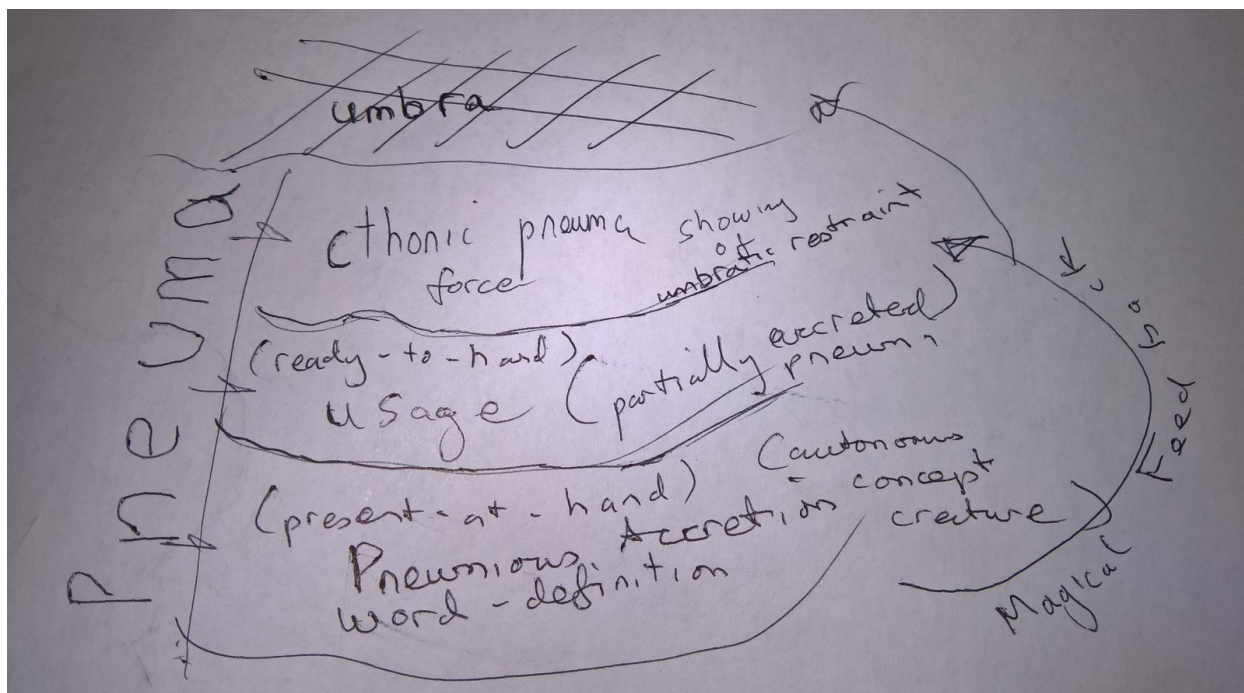 umbra
Pneuma
cthonic pneuma showing
force of
umbratic restraint
(ready-to-hand)
usage (partially accreted
pneuma)
(present-at-hand) (autonomous
Pneumious Accretion concept
word-definition creature)
Magical
Feed